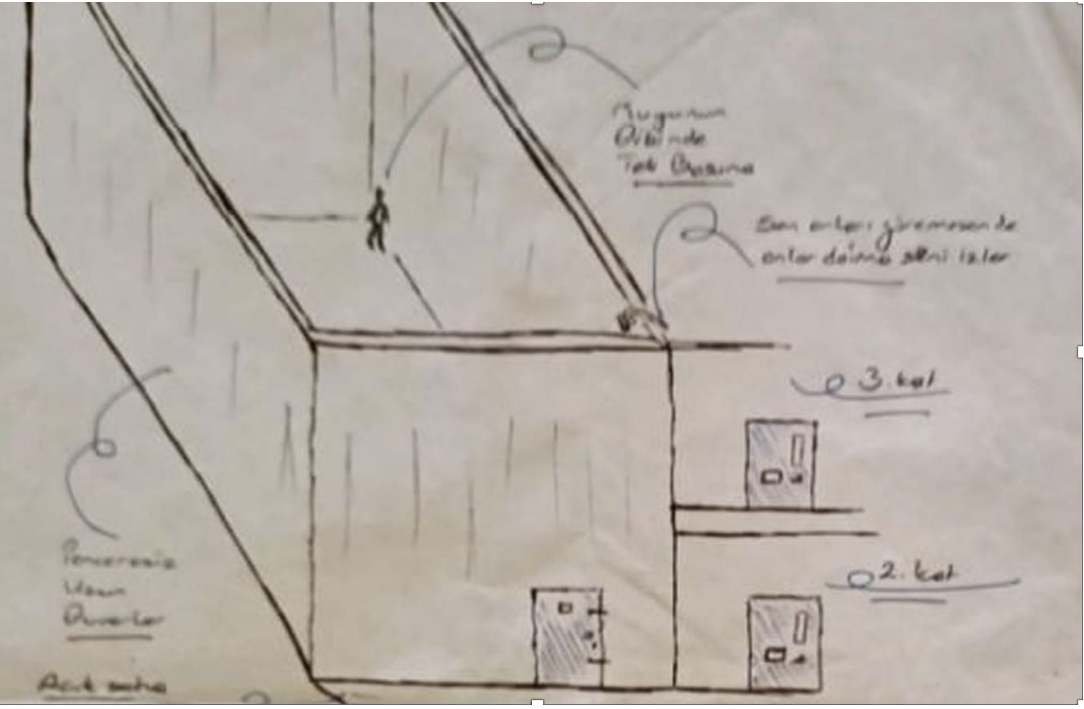 Kuyunun
Dibinde
Tek Başına
Sen onları göremesen de
onlar daima seni izler
3. kat
2. kat
Penceresiz
Uzun
Duvarlar
Açık saha